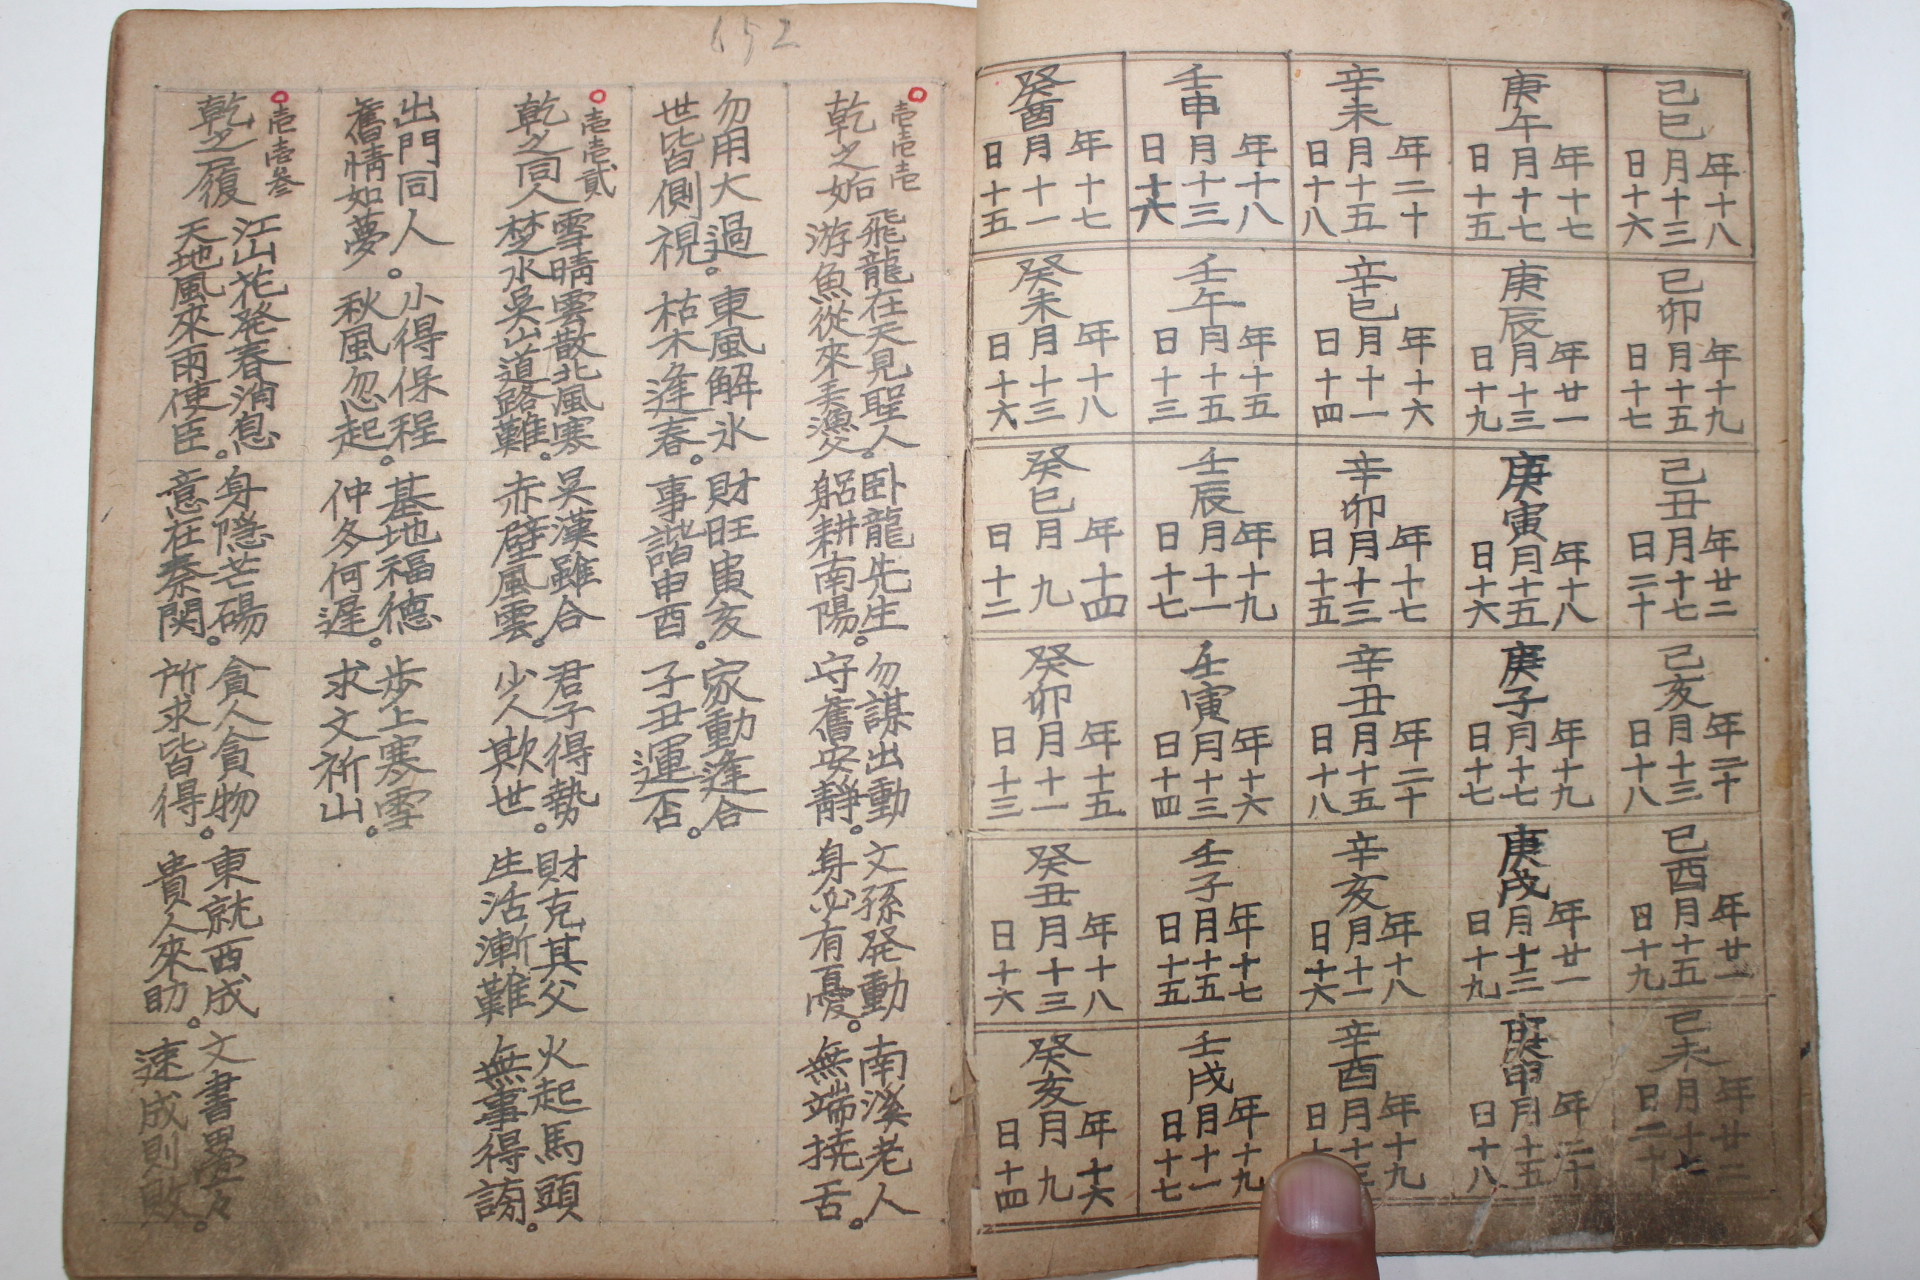 己巳 年十八 月十三 日十六
庚午 年十七 月十七 日十五
辛未 年二十 月十五 日十八
壬申 年十八 月十三 日十六
癸酉 年十七 月十一 日十五
己卯 年十九 月十五 日十七
庚辰 年廿一 月十三 日十九
辛巳 年十六 月十一 日十四
壬午 年十五 月十五 日十三
癸未 年十八 月十三 日十六
己丑 年廿二 月十七 日二十
庚寅 年十八 月十五 日十六
辛卯 年十七 月十三 日十五
壬辰 年十九 月十一 日十七
癸巳 年十四 月九 日十二
己亥 年二十 月十三 日十八
庚子 年十九 月十七 日十七
辛丑 年二十 月十五 日十八
壬寅 年十六 月十三 日十四
癸卯 年十五 月十一 日十三
己酉 年廿一 月十五 日十九
庚戌 年廿一 月十三 日十九
辛亥 年十八 月十一 日十六
壬子 年十七 月十五 日十五
癸丑 年十八 月十三 日十六
己未 年廿二 月十七 日二十
庚申 年二十 月十五 日十八
辛酉 年十九 月十三 日十
壬戌 年十九 月十一 日十七
癸亥 年十六 月九 日十四
652
壱壱壱
乾之姤
飛龍在天見聖人
游魚從來美。
卧龍先生
躬耕南陽。
勿謀出動
守舊安靜。
文孫発動
身必有憂。
南溪老人
無端撓舌。
勿用大過
世皆側視。
東風解氷
枯木逢春。
財旺寅亥
事諧申酉。
家動逢合
子丑運否。
壱壱貳
乾之同人
雪晴雲散北風寒
楚水吳山道路難。
吳漢雖合
赤壁風雲。
君子得勢
少人欺世。
財克其父
生活漸難
火起馬頭
無事得謗。
出門同人
舊情如夢。
小得保程
秋風忽起。
基地福德
仲冬何遲。
步上寒雪
求文祈山。
壱壱参
乾之履
江山花発春消息
天地風來雨使臣。
身隱芒碭
意在秦関。
貪人貪物
所求皆得。
東就西成
貴人來助。
文書疊々
速成則敗。